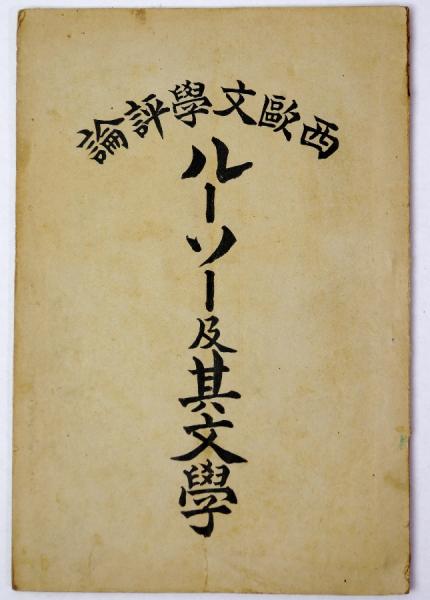 西歐文學評論
ルーソー及其文學